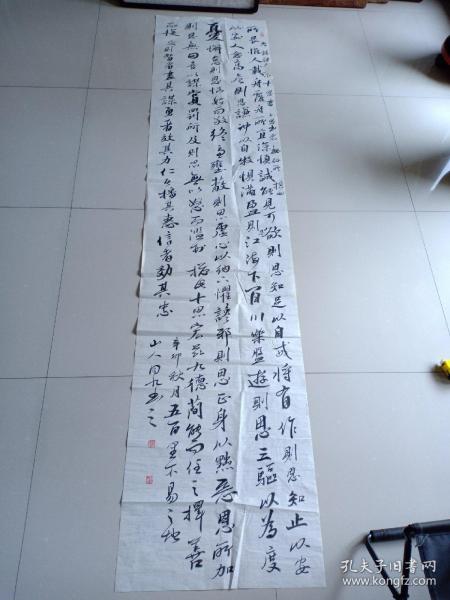 所畏惟人載舟覆舟所宜深慎誠能見可欲則思知足以自戒將有作則思知止以安
以安人念高危則思謙沖以自牧懼滿盈則江海下百川樂盤遊則思三驅以為度
憂懈怠則思慎始而敬終慮壅蔽則思虛心以納下懼讒邪則思正身以黜惡恩所加
則思無因喜以謬賞罰所及則思無以怒而濫刑總此十思宏茲九德簡能而任之擇善
而從之則智者盡其謀勇者效其力仁者播其惠信者効其忠
辛卯秋月五百里不易之地
山人
孔夫子旧书网
book.kongfz.com